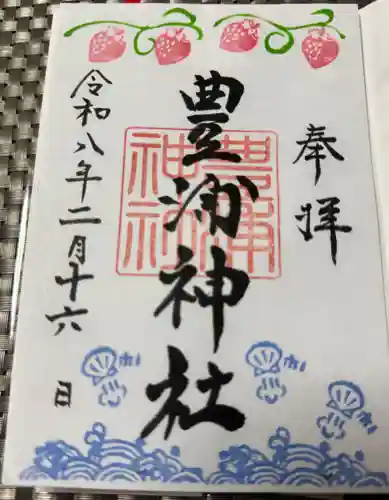 奉拝
豊浦神社
豊浦神社
令和八年二月十六日